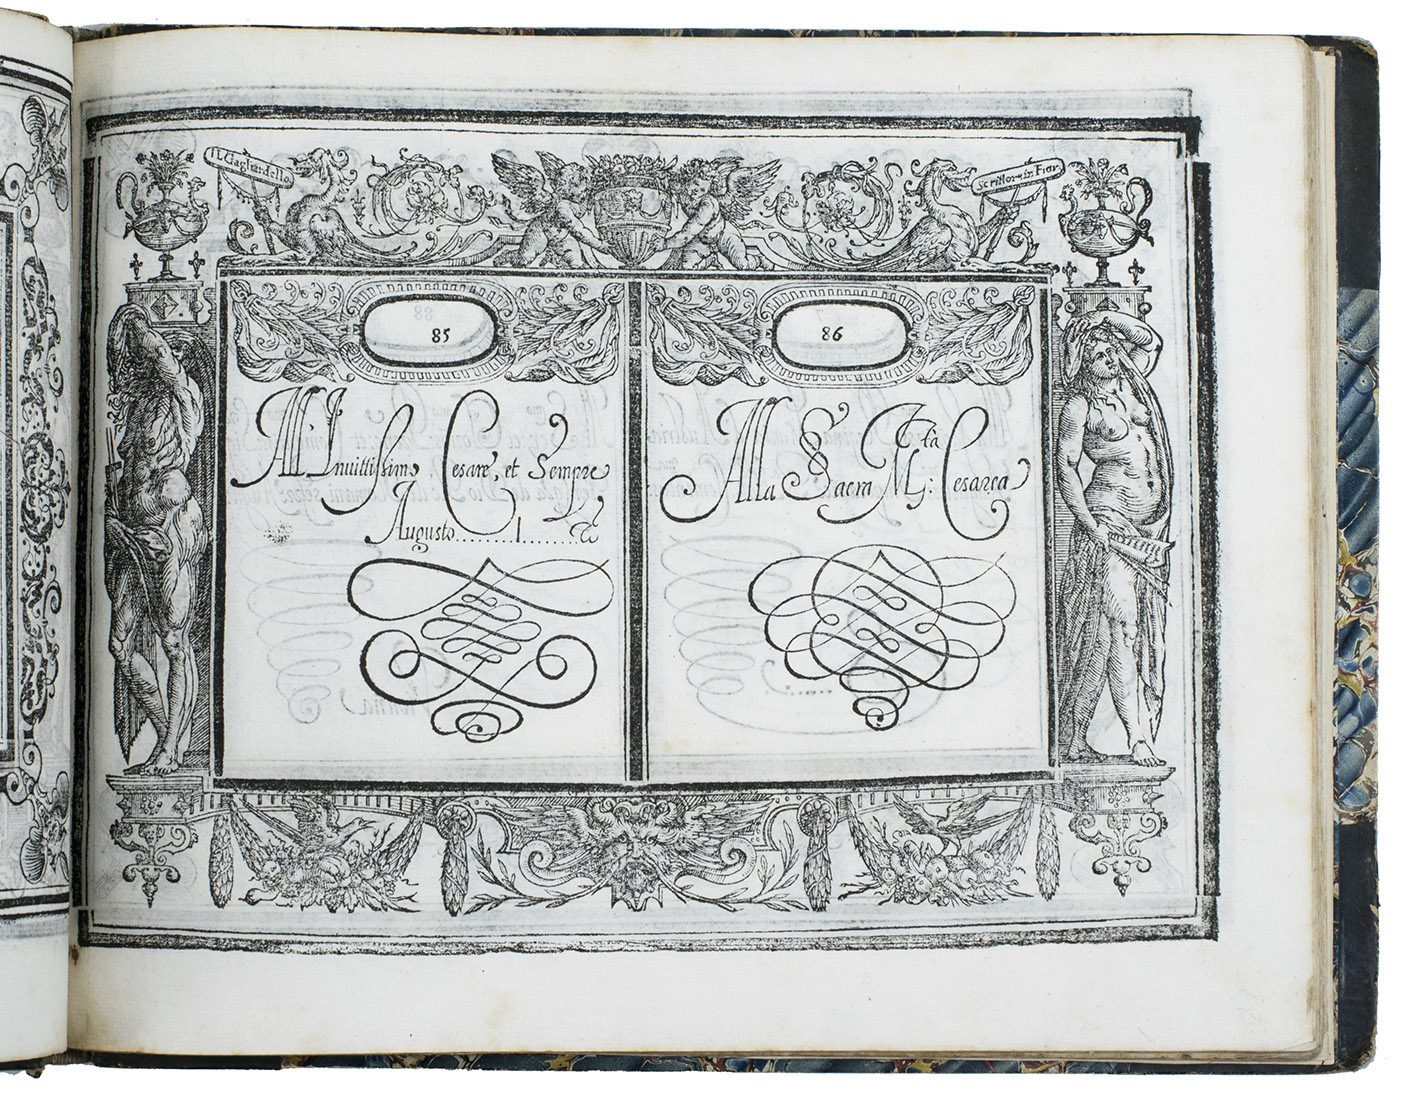 IL Gagliardello
Scrittore in Fior
85
All Invittissimo Cesare, et Sempre
Augusto........1........
86
Alla Sacra M.tà: Cesarea